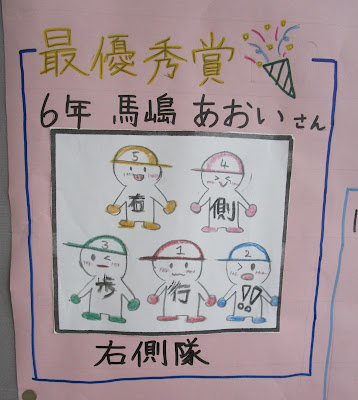 最優秀賞
6年 馬嶋 あおい さん
5 4
右 側
3 1 2
歩 行 !!
右側隊